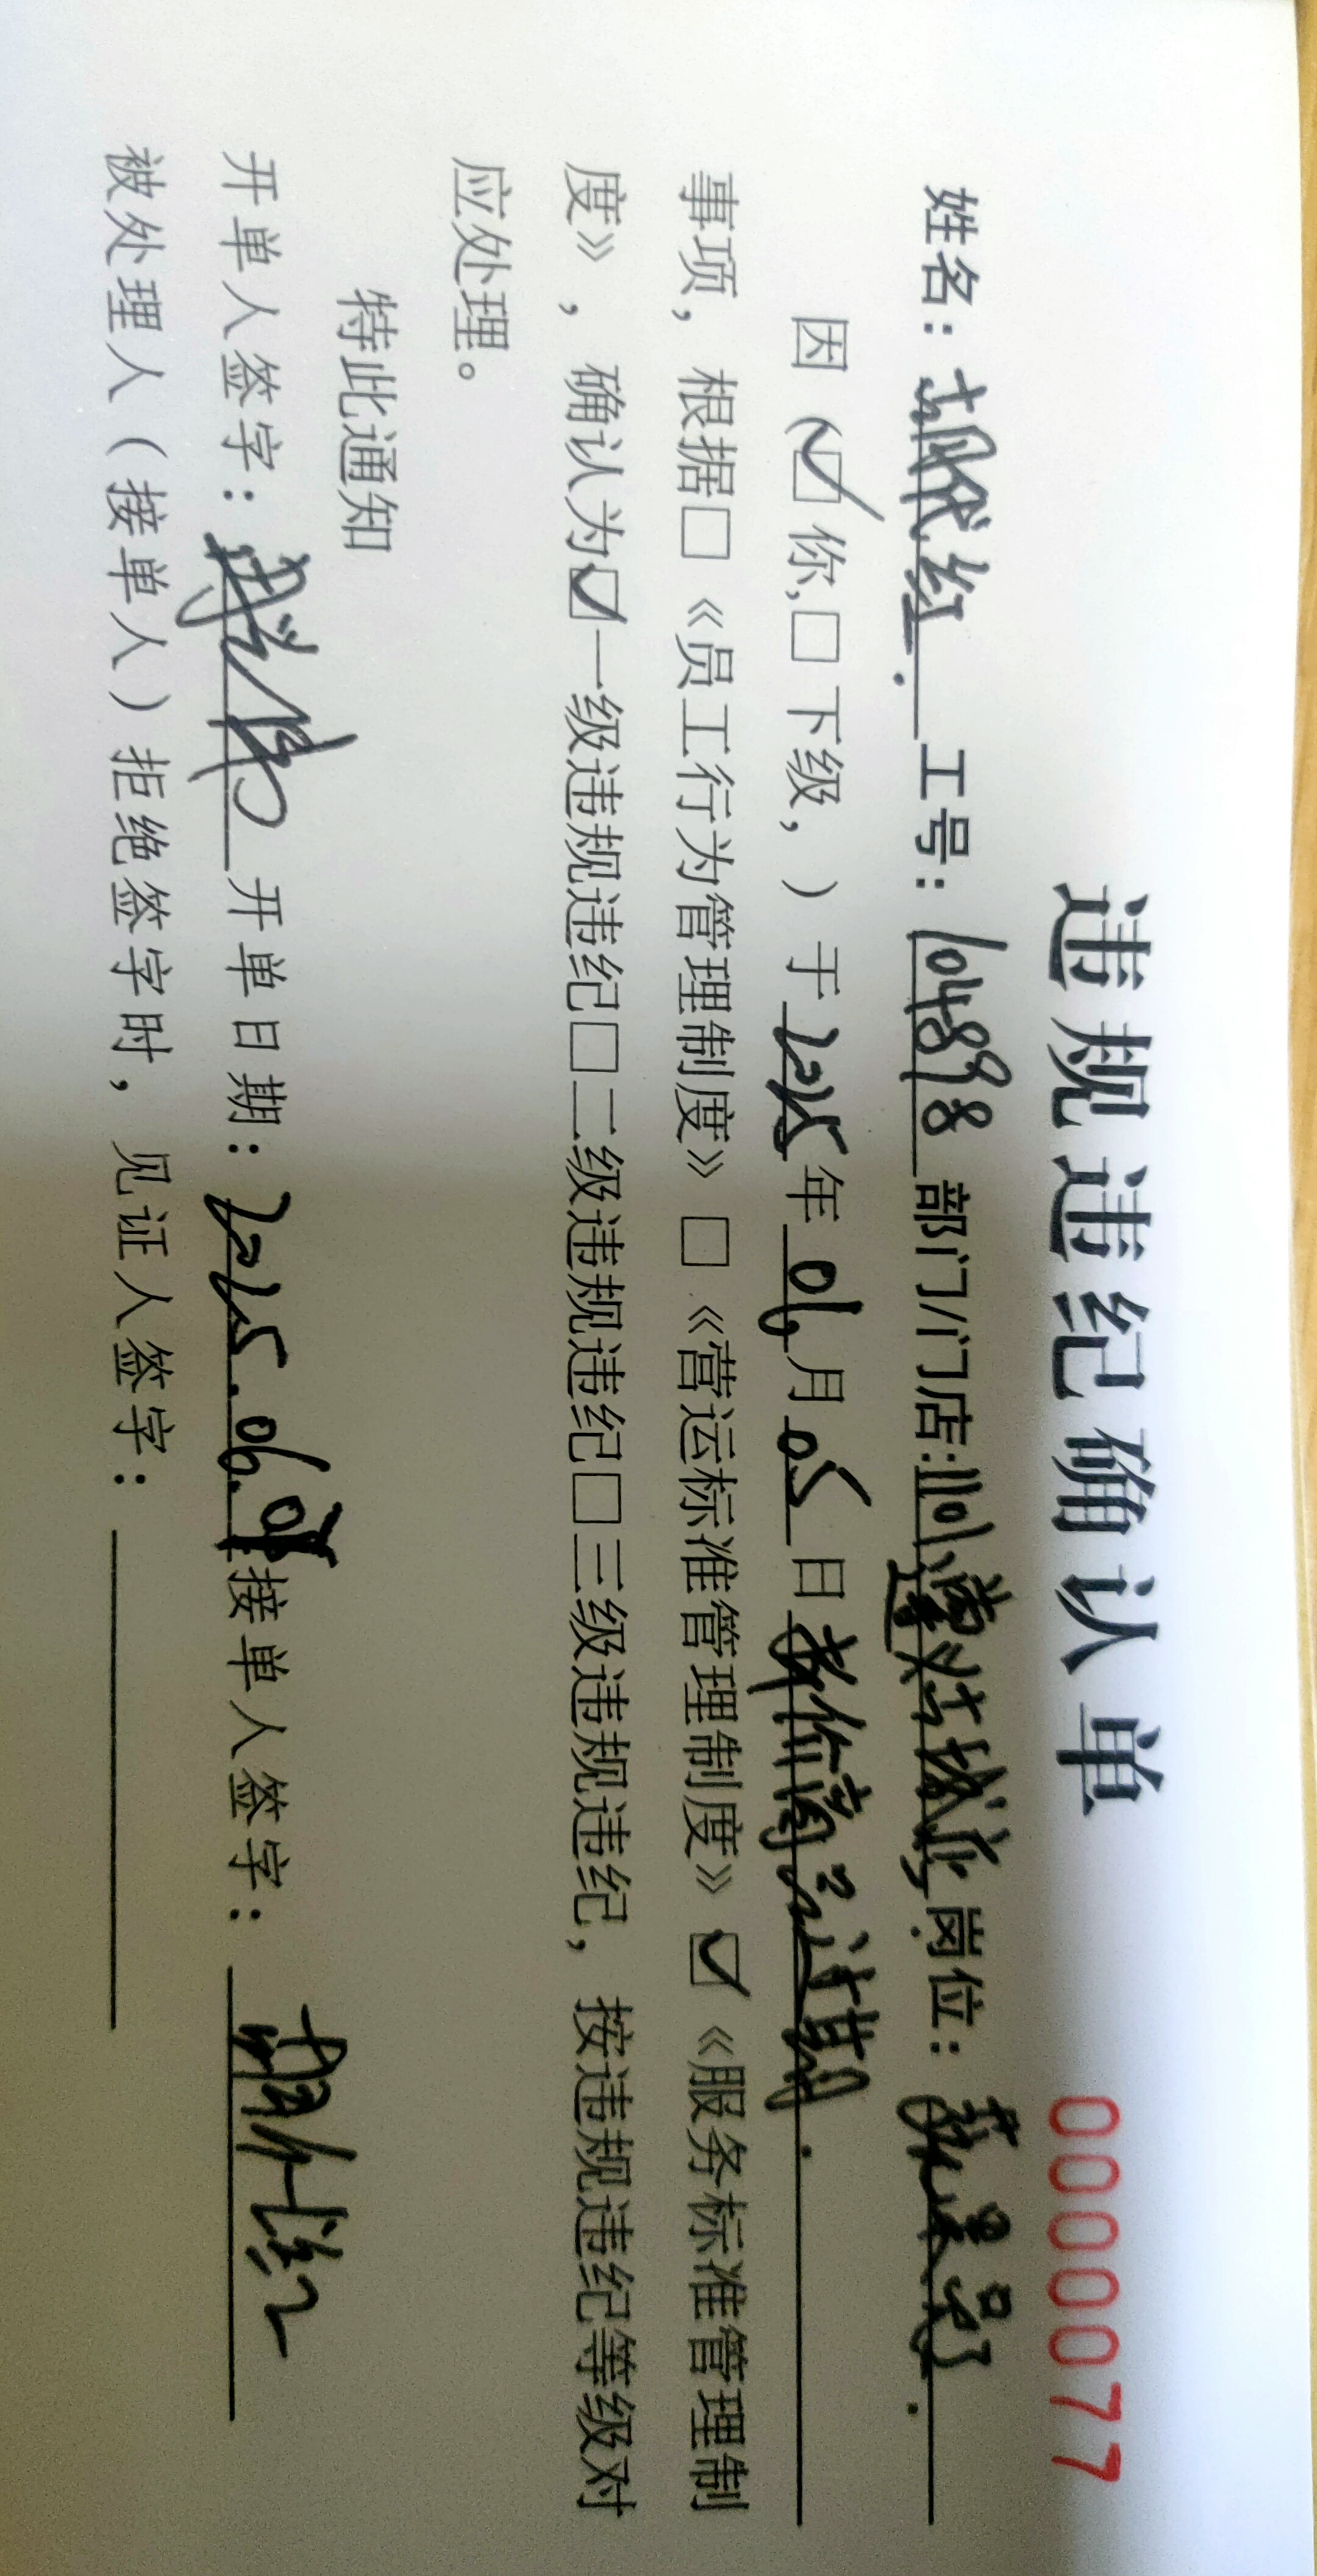 违规违纪确认单 0000077
姓名: 胡代红. 工号: 104898 部门/门店: 1101遵义 岗位:
因(☑你,□下级,)于2025年01月05日 过期.
事项,根据□《员工行为管理制度》□《营运标准管理制度》☑《服务标准管理制
度》,确认为☑一级违规违纪□二级违规违纪□三级违规违纪,按违规违纪等级对
应处理。
特此通知
开单人签字: 开单日期: 2025.06. 接单人签字: 胡代红
被处理人(接单人)拒绝签字时,见证人签字: